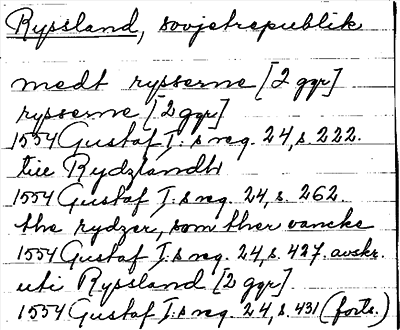 Ryssland, sovjetrepublik
medt rysserne [2 ggr]
rysserne [2 ggr]
1554 Gustaf I:s reg. 24, s. 222.
till Rydzlandh
1554 Gustaf I:s reg. 24, s. 262.
the rydzer, som ther vancke
1554 Gustaf I:s reg. 24, s. 427. avskr.
uti Ryssland [2 ggr].
1554 Gustaf I:s reg. 24, s. 431 (forts.)